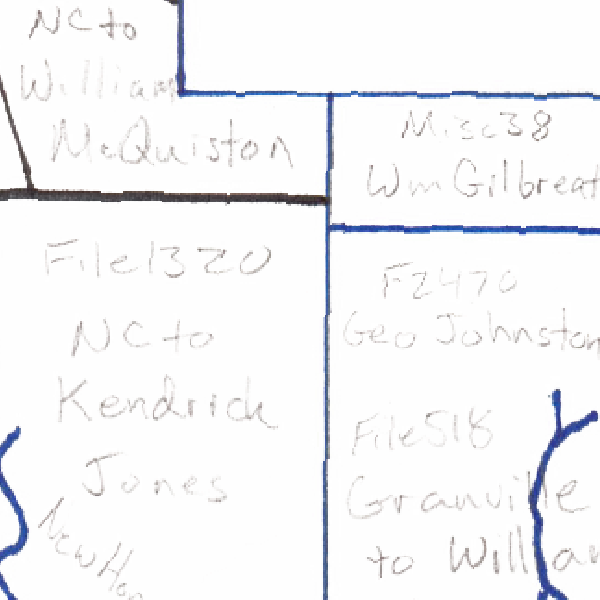 NC to
William
McQuiston
Misc 38
Wm Gilbreat
File 1320
NC to
Kendrick
Jones
F2470
Geo Johnston
File 518
Granville
to William
New